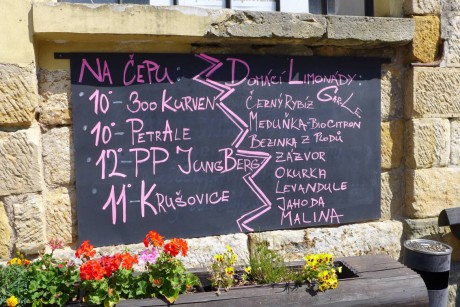 NA ČEPU:
10°-300 KURVEN
10°-PETRALE
12°-PP JUNGBERG
11°-KRUŠOVICE
DOMÁCÍ LIMONÁDY:
ČERNÝ RYBÍZ
MEDUŇKA-BIO CITRON
BEZINKA Z PLODŮ
ZÁZVOR
OKURKA
LEVANDULE
JAHODA
MALINA